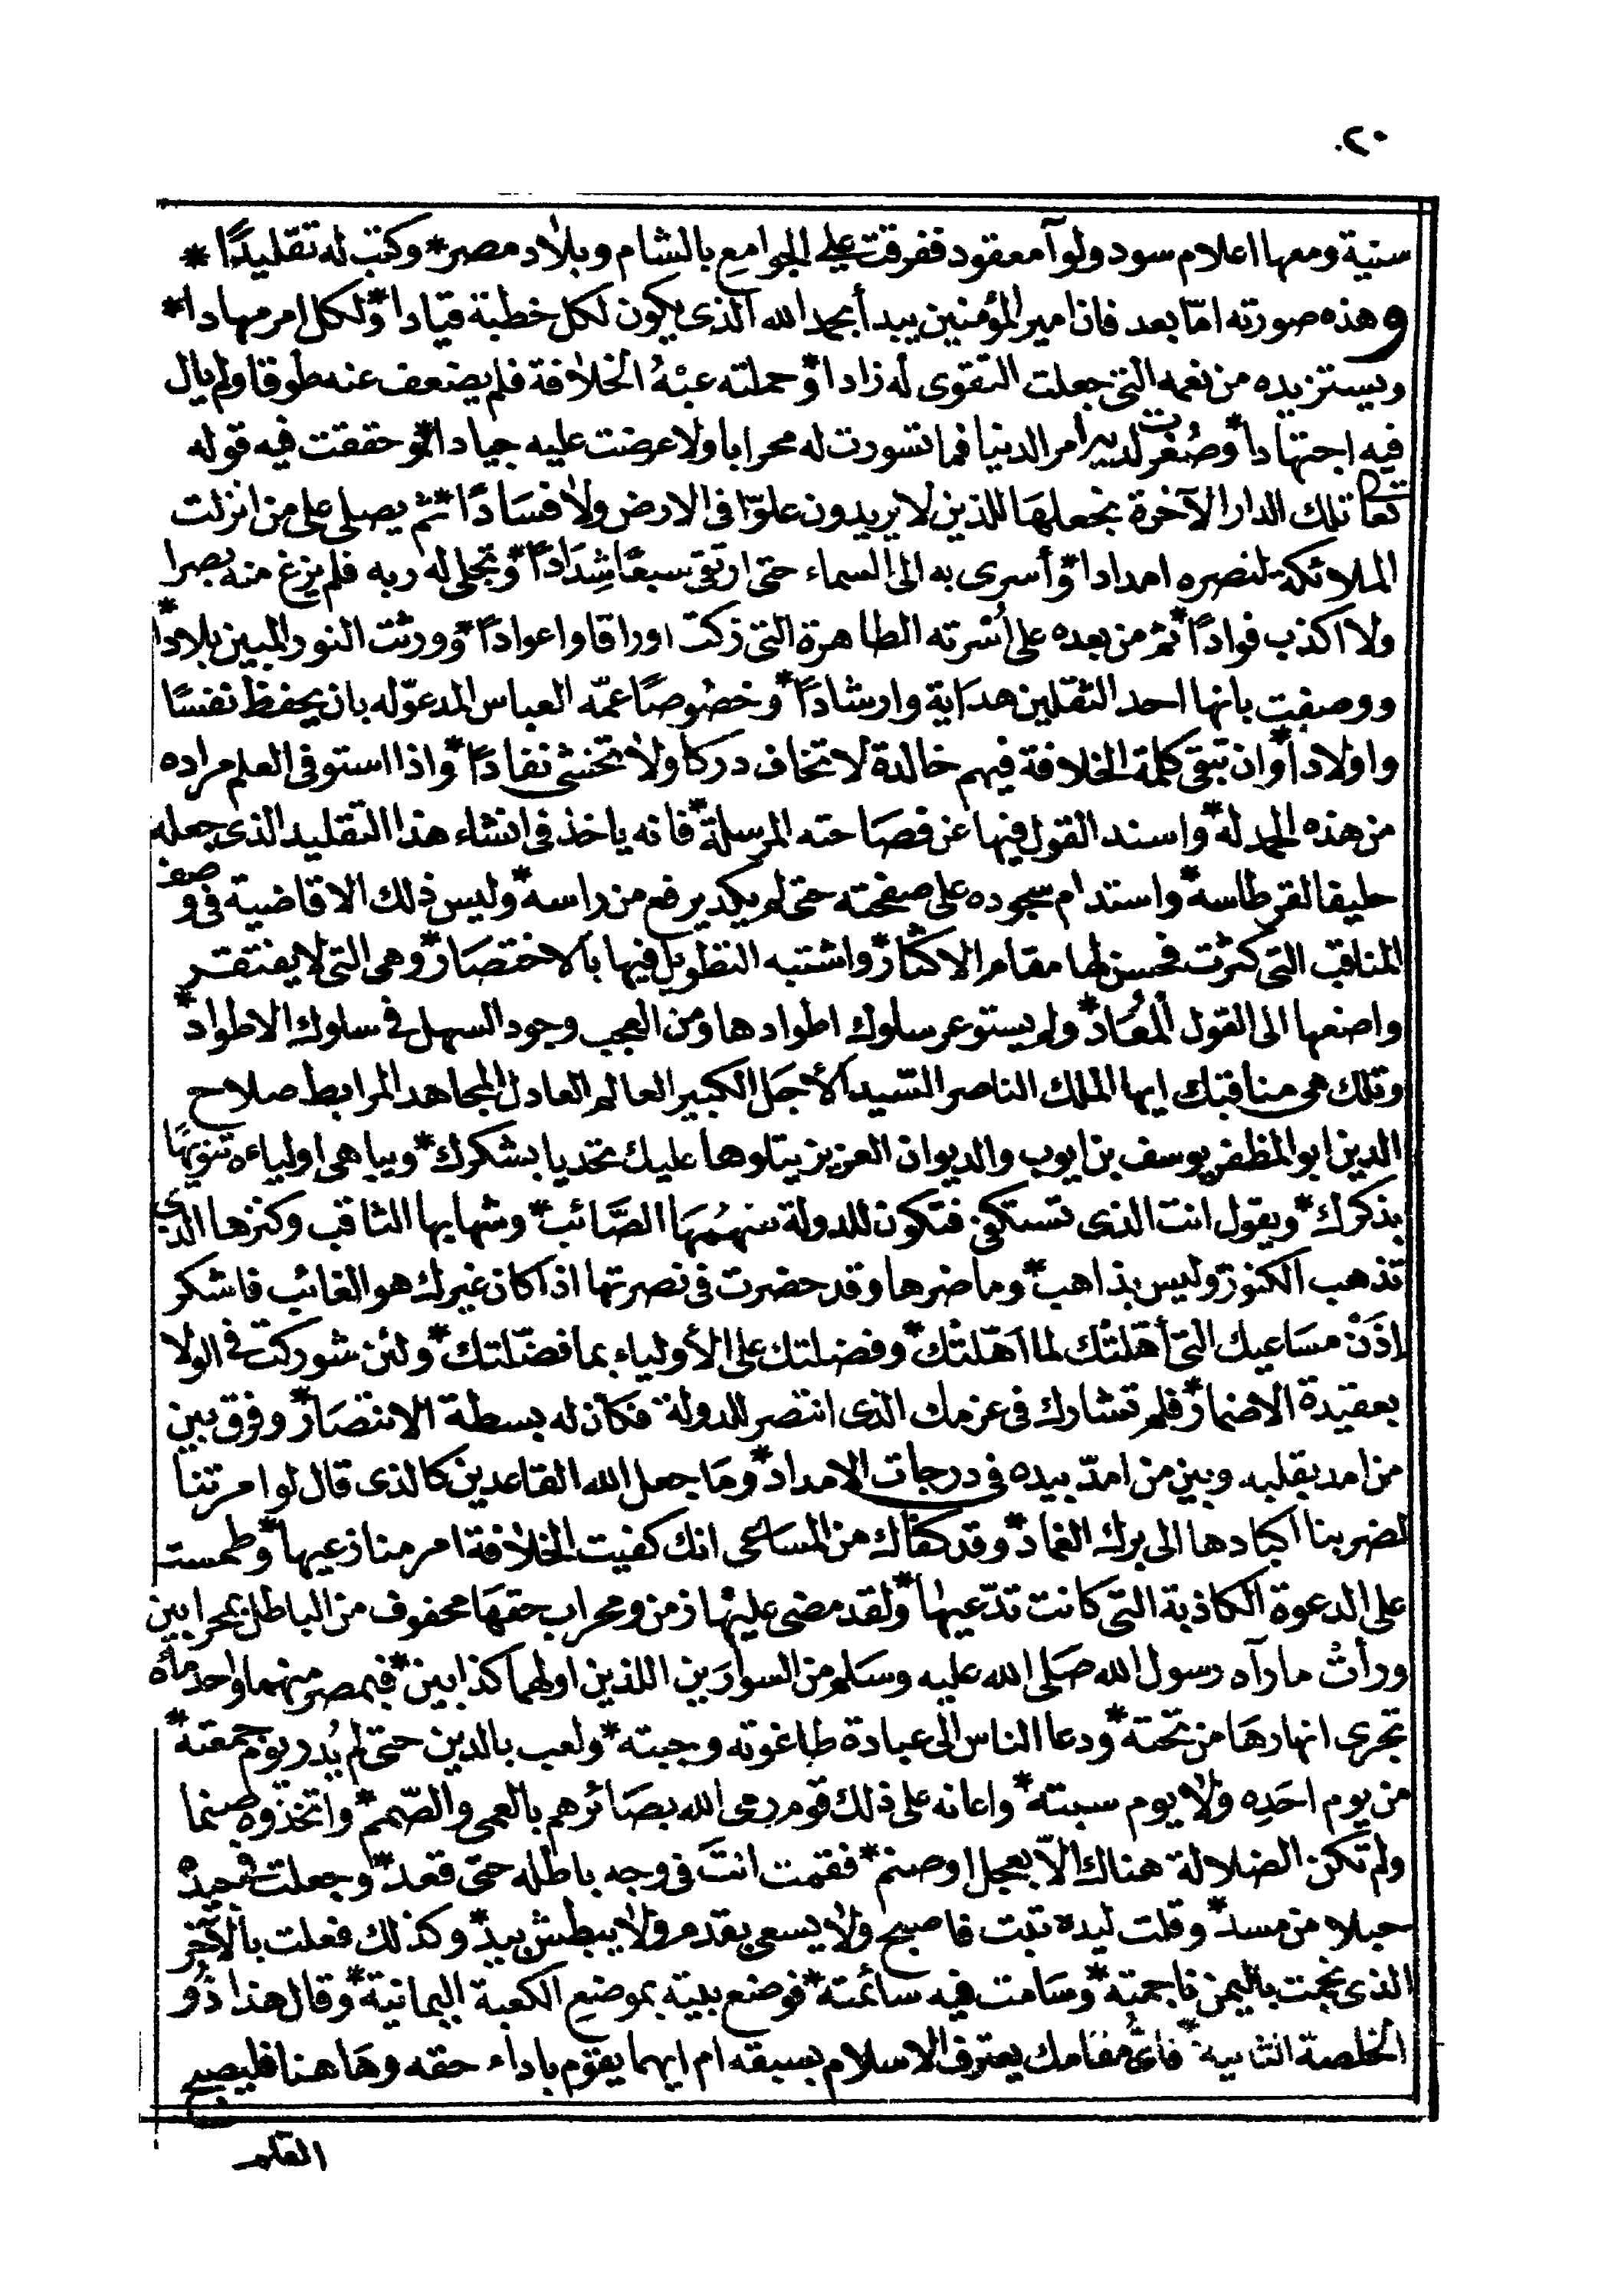 ٢٠
سنية ومعها اعلام سود ولوآ معقود ففرقت على الجوامع بالشام وبلاد مصر * وكتب له تقليدًا *
وهذه صورته امّا بعد فان امير المؤمنين يبدأ بحمد الله الذى يكون لكل خطبة قيادا * ولكل امر مهادا *
ويستزيده من نعمه التى جعلت التقوى له زادا * وحملته عبْهُ الخلافة فلم يضعف عنه طوقا ولم يال
فيه اجتهادا * وصُغرت لديه امر الدنيا فما تسورت له محرابا ولا عرضت عليه جيادا * وحققت فيه قوله
تعا تلك الدار الآخرة نجعلهَا للذين لا يريدون علوّا فى الارض ولا فسَادًا * ثم يصلى على من انزلت
الملائكة لنصره امدادا * وأسرى به الى السماء حتى ارتقى سبعًا شِدَادًا * وتجلى له ربه فلم يزغ منه بصرا
ولا اكذب فوادًا * ثم من بعده على اُسْرته الطاهرة التى زكت اوراقا واعوادًا * وورثت النور المبين بلادا *
ووصفت بانها احد الثقلين هدَاية وارشادًا * وخصُوصًا عمّه العباس المدعوّ له بان يحفظ نفسًا
واولادا * وان تبقى كلمة الخلافة فيهم خالدة لا تخاف دركا ولا تخشى نفادًا * واذا استوفى العلم مراده
من هذه الحمدلة * واسند القول فيها عن فصَاحته المرسلة * فانه ياخذ فى انشاء هذا التقليد الذى جعله
حليفا لقرطاسه * واستدام سجوده على صفحته حتى لم يكد يرفع من راسه * وليس ذلك الا قاضية فى وصف
المناقب التى كثرت فحسن لها مقام الاكثار * واشتبه التطويل فيها بالاختصَار * وهى التى لا يفتقر
واصفها الى القول المُعَاد * ولم يستوعر سلوك اطوادها ومن العجب وجود السهل فى سلوك الاطواد *
وتلك هى مناقبك ايها الملك الناصر السّيد الأجَل الكبير العالم العادل المجاهد المرابط صلاح
الدين ابو المظفر يوسف بن ايوب والديوان العزيز يتلوها عليك تحديا بشكرك * ويباهى اولياءه تنويهًا
بذكرك * ويقول انت الذى تستكفى فتكون للدولة سَهْمُهَا الصَّائب * وشهابها الثاقب وكنزها الذى
تذهب الكنوز وليس بذاهب * وما ضرها وقد حضرت فى نصرتها اذا كان غيرك هو الغائب فاشكر
اذَنْ مسَاعيك التى أهّلتْك لما اهّلتْك * وفضلتك على الأولياء بما فضّلتك * ولئن شوركت فى الولا
بعقيدة الاضمار * فلم تشارك فى عزمك الذى انتصر للدولة فكان له بسطة الانتصَار * وفرق بين
من امد بقلبه وبين من امدّ بيده فى درجات الامداد * ومَا جعل الله القاعدين كالذى قال لو امرتنا
لضربنا اكبادها الى برك الغماد * وقد كفاك من المسَاعى انك كفيت الخلافة امر منازعيها * وطمست
على الدعوة الكاذبة التى كانت تدّعيها * ولقد مضى عليهَا زمن ومحراب حقهَا محفوف من الباطل بمحرابين
ورأتْ ما رآه رسول الله صَلى الله عليه وسَلم من السوارَين اللذين اولهما كذابين * فبمصر منهما واحد مائه
تجرى انهارهَا من تحته * ودعا الناس الى عبادة طاغوته وجبته * ولعب بالدين حتى لم يُدر يوم جمعته *
من يوم احَدِه ولا يوم سبته * واعانه على ذلك قوم رمى الله بصَائرهم بالعمى والصّمم * واتخذوه صنما
ولم تكن الضلالة هناك الاّ بعجل او صنم * فقمت انتَ فى وجه باطله حتى قعد * وجعلت فى جيده
حبلا من مسد * وقلت ليده تبت فاصبح ولا يسعى بقدم ولا يبطش بيد * وكذلك فعلت بالآخر
الذى نجمت باليمن ناجمته * وسَامت فيه سائمته * فوضع بيته بموضع الكعبة اليمانية * وقال هذا ذُو
الخلصة الثانية * فاىُّ مقَامك يعترف الاسلام بسبقه ام ايهما يقوم باداء حقه وهَا هنا فليصبح
القلم